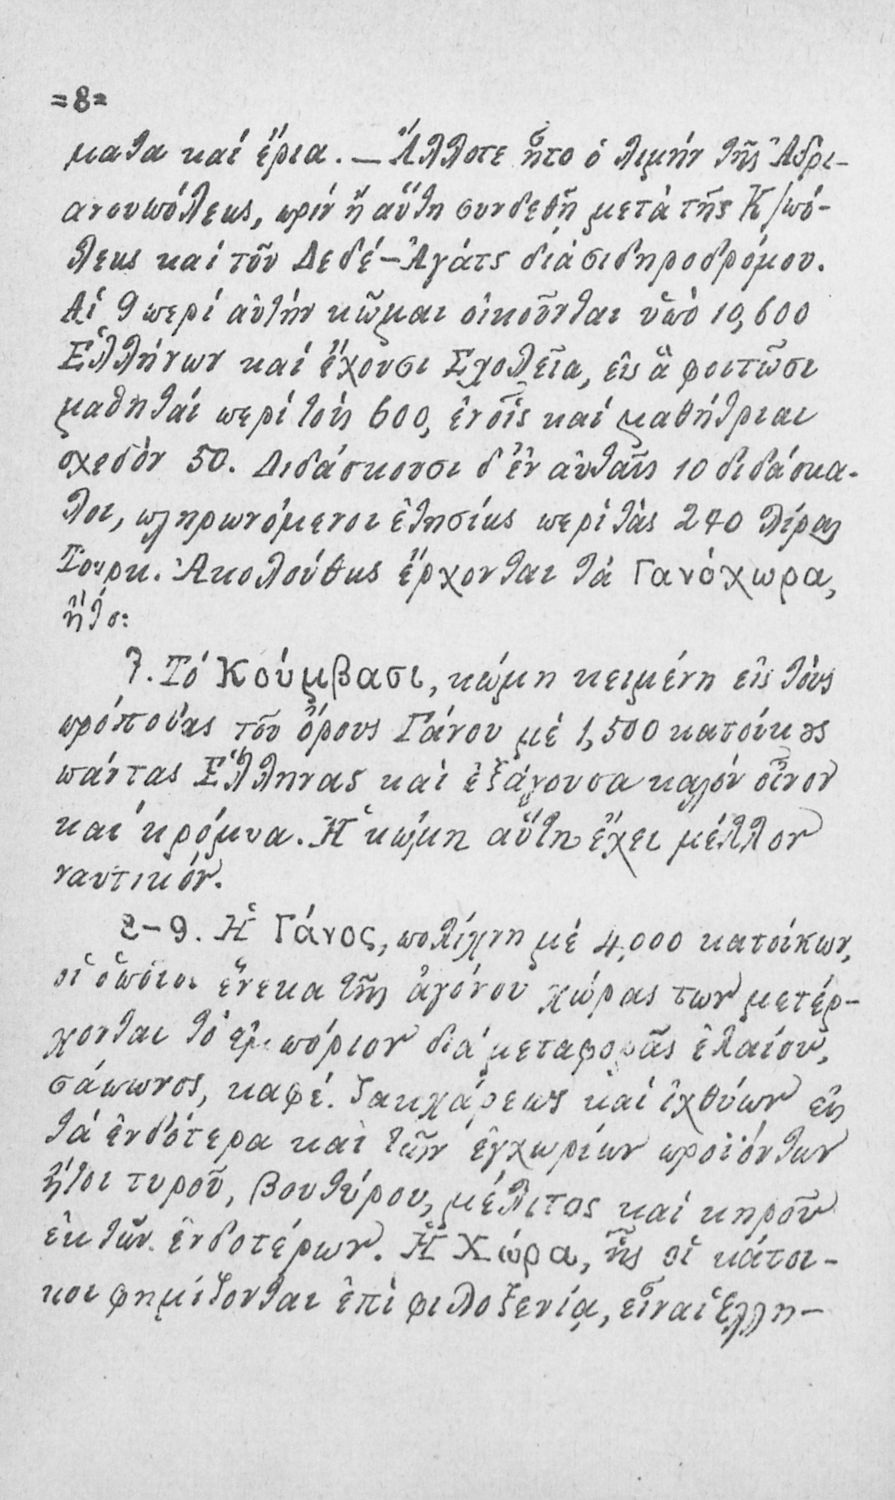 =8=
ματα καὶ ἔρια.— Ἄλλοτε ἦτο ὁ λιμὴν τῆς Ἀδρι-
ανουπόλεως, πρὶν ἢ αὕτη συνδεθῇ μετὰ τῆς Κ/πό-
λεως καὶ τοῦ Δεδέ-Ἀγάτς διὰ σιδηροδρόμου.
Αἱ 9 περὶ αὐτὴν κῶμαι οἰκοῦνται ὑπὸ 10,600
Ἑλλήνων καὶ ἔχουσι Σχολεῖα, εἰς ἃ φοιτῶσι
μαθηταὶ περὶ τοὺς 600, ἐν οἷς καὶ μαθήτριαι
σχεδὸν 50. Διδάσκουσι δ' ἐν αὐταῖς 10 διδάσκα-
λοι, πληρωνόμενοι ἐτησίως περὶ τὰς 240 λίρας
Τουρκ. Ἀκολούθως ἔρχονται τὰ Γανόχωρα,
ἤτο:
7. Τὸ Κούμβασι, κώμη κειμένη εἰς τοὺς
πρόποδας τοῦ ὄρους Γάνου μὲ 1,500 κατοίκους
πάντας Ἕλληνας καὶ ἐξάγουσα καλὸν οἶνον
καὶ κρόμυα. Ἡ κώμη αὕτη ἔχει μέλλον
ναυτικόν.
8-9. Ἡ Γάνος, πολίχνη μὲ 4,000 κατοίκων,
οἱ ὁποῖοι ἕνεκα τῆς ἀγόνου χώρας των μετέρ-
χονται τὸ ἐμπόριον διὰ μεταφορᾶς ἐλαίου,
σάπωνος, καφέ, ζακχάρεως καὶ ἰχθύων εἰς
τὰ ἐνδότερα καὶ τῶν ἐγχωρίων προϊόντων
ἤτοι τυροῦ, βουτύρου, μέλιτος καὶ κηροῦ
ἐκ τῶν ἐνδοτέρων. Ἡ Χώρα, ἧς οἱ κάτοι-
κοι φημίζονται ἐπὶ φιλοξενίᾳ, εἶναι ἑλλη-